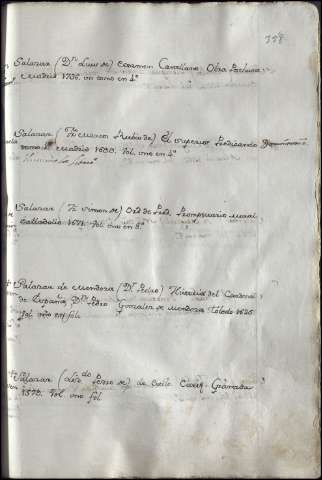 358
Salazar (Dn. Luis de) Examen Castellano. Obra Posthuma
Madrid 1736. un tomo en 4º
Salazar (Fr. Marcos Rubio de) El Superior Predicando
tomo 1º Madrid 1680. Vol. uno en 4º
Salazar (Fr. Simon de) Ord de Pred. Promptuario Moral
Valladolid 1671. Vol. uno en 8º
Salazar de Mendoza (Dr. Pedro) Historia del Cardenal
de España, Dn. Pedro Gonzalez de Mendoza Toledo 1625
Vol. uno en fol.
Salazar (Lizdo. Pedro de) de Granada
1579. Vol. uno fol